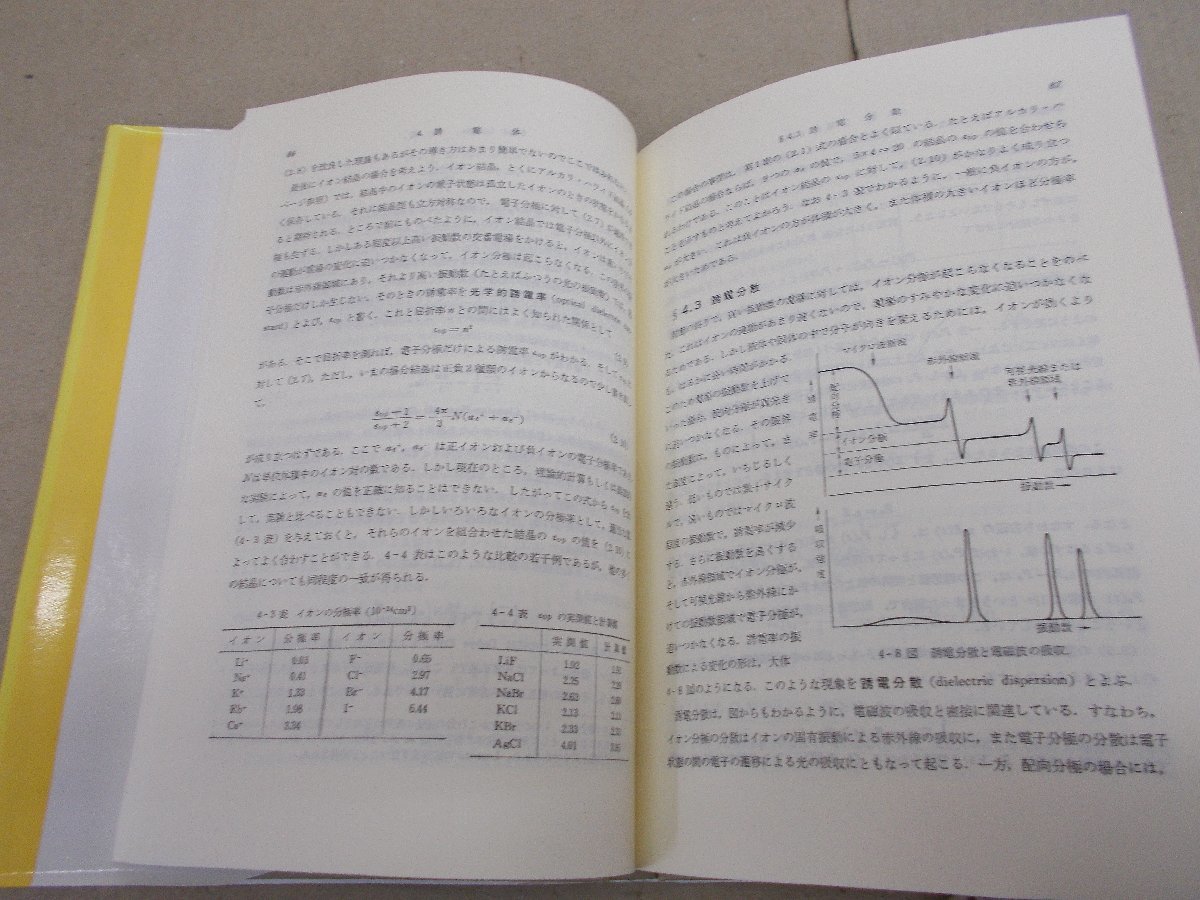 66
4. 誘 電 体
(2.8) を改良した理論もあるがその導き方はあまり簡単でないのでここでは
最後にイオン結晶の場合を考えよう. イオン結晶, とくにアルカリ・ハライド結晶
ページ参照) では, 結晶中のイオンの電子状態は孤立したイオンのときの
く保存している. それに結晶型も立方対称なので, 電子分極に対して (2.7) が
ると期待される. ところで前にものべたように, イオン結晶では電子分極以外にイオン分
極も生ずる. しかしある程度以上高い振動数の交番電場をかけると, イオンは重い
の運動が電場の変化に追いつかなくなって, イオン分極は起こらなくなる. この
動数は赤外線領域にあり, それより高い振動数 (たとえばふつうの光の振動数) では, 電
子分極だけしか生じない. そのときの誘電率を光学的誘電率 (optical dielectric con-
stant) とよび, εop と書く. これと屈折率 n との間にはよく知られた関係として
εop = n²
がある. そこで屈折率を測れば, 電子分極だけによる誘電率 εop がわかる. そして
対して (2.7), ただし, いまの場合結晶は正負 2 種類のイオンからなるので少し
て,
εop − 1 / εop + 2 = 4π/3 N(αe⁺ + αe⁻)
が成り立つはずである. ここで αe⁺, αe⁻ は正イオンおよび負イオンの電子分極率であ
N は単位体積中のイオン対の数である. しかし現在のところ, 理論的計算もしくは
な実験によって, αe の値を正確に知ることはできない. したがってこの式から εop を
して, 実験と比べることもできない. しかしいろいろなイオンの分極率として, 適当な
(4-3 表) を与えておくと, それらのイオンを組合わせた結晶の εop の値を (2.10) に
よってよく合わすことができる. 4-4 表はこのような比較の若干例であるが, 他の多く
の結晶についても同程度の一致が得られる.
4-3 表 イオンの分極率 (10⁻²⁴cm³)
イオン 分極率 イオン 分極率
Li⁺ 0.03 F⁻ 0.65
Na⁺ 0.41 Cl⁻ 2.97
K⁺ 1.33 Br⁻ 4.17
Rb⁺ 1.98 I⁻ 6.44
Cs⁺ 3.34
4-4 表 εop の実測値と計算値
実測値 計算値
LiF 1.92
NaCl 2.25
NaBr 2.63
KCl 2.13
KBr 2.33
AgCl 4.01
§ 4.3 誘 電 分 散
67
この場合の事情は, 第 1 章の (2.1) 式の場合とよく似ている. たとえばアルカリ・ハ
ライド結晶の場合ならば, 9 つの αe の値で, 5×4=20 の結晶の εop の値を合わせら
れるわけである. このことはイオン結晶の εop に対して, (2.10) がかなりよく成り立つ
ことを示すものと考えてよかろう. なお 4-3 表でわかるように, 一般に負イオンの方が,
αe が大きい. これは負イオンの方が体積が大きく, また体積の大きいイオンほど分極率
が大きいためである.
§ 4.3 誘電分散
前節の終りで, 高い振動数の電場に対しては, イオン分極が起こらなくなることをのべ
た. これはイオンの運動があまり速くないので, 電場のすみやかな変化に追いつかなくな
るためである. しかし液体や固体の中で分子が向きを変えるためには, イオンが動くより
も, はるかに長い時間がかかる.
このため電場の振動数を上げて
いった場合, 配向分極が真先き
に追いつかなくなる. その限界
の振動数は, ものによって, ま
た温度によって, いろいろしく
違う. 低いものでは数十サイク
ル, 高いものではマイクロ波
程度の振動数で, 誘電率が減少
する. さらに振動数を高くする
と, 赤外線領域でイオン分極が,
そして可視光線から紫外線にか
けての振動数領域で電子分極が,
追いつかなくなる. 誘電率の振
動数による変化の形は, 大体
マイクロ波領域
赤外線領域
可視光線または
紫外線領域
誘電率
配向分極
イオン分極
電子分極
振動数→
吸収強度
振動数→
4-8 図 誘電分散と電磁波の吸収.
4-8 図のようになる. このような現象を誘電分散 (dielectric dispersion) とよぶ.
誘電分散は, 図からもわかるように, 電磁波の吸収と密接に関連している. すなわち,
イオン分極の分散はイオンの固有振動による赤外線の吸収に, また電子分極の分散は電子
状態の間の電子の遷移による光の吸収にともなって起こる. 一方, 配向分極の場合には,